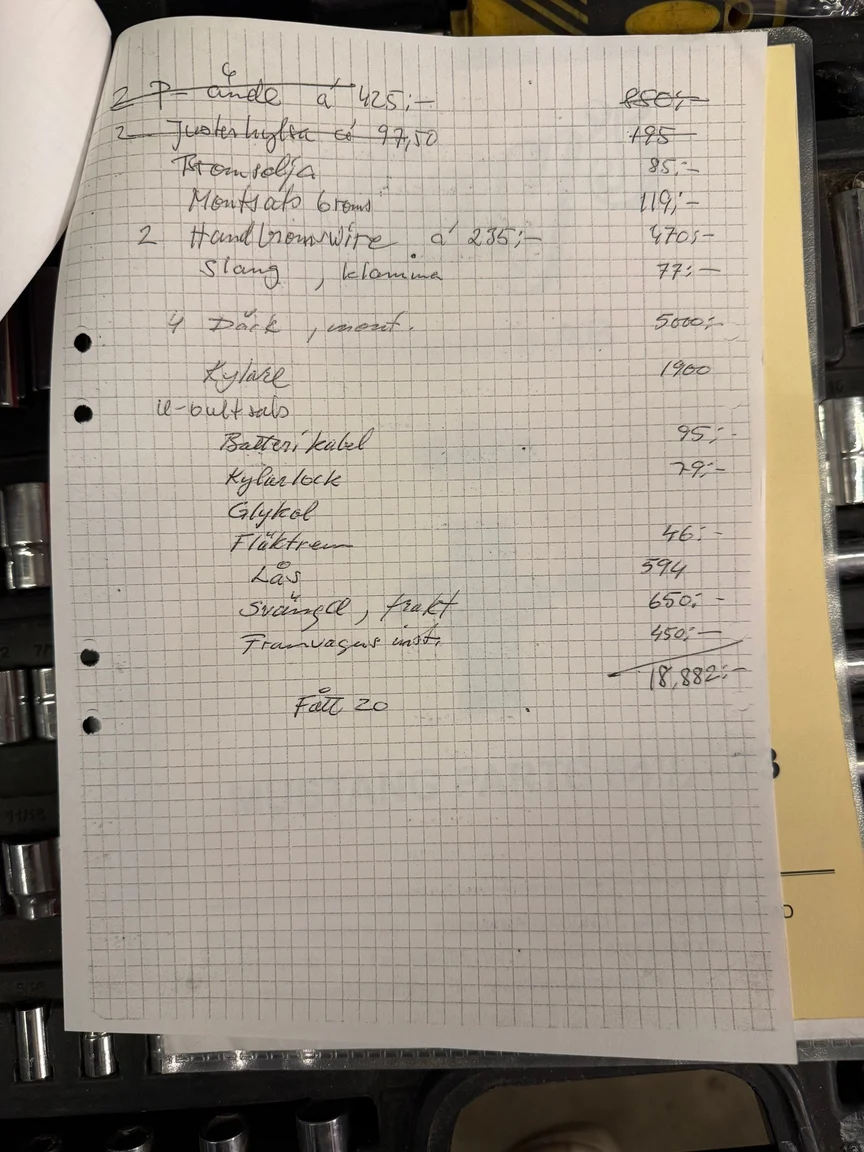 2 P-ände á 425;- 850;-
2 Justerhylsa á 97,50 195
Bromsolja 85;-
Montsats broms 119;-
2 Handbromswire á 235;- 470;-
Slang, klamma 77;-
4 Däck, mont. 5000;-
Kylare 1900
U-bultsats
Batterikabel 95;-
Kylarlock 79;-
Glykol
Fläktrem 46;-
Lås 594
Svängd, frakt 650;-
Framvagns inst. 450;-
18,882:-
Fått 20